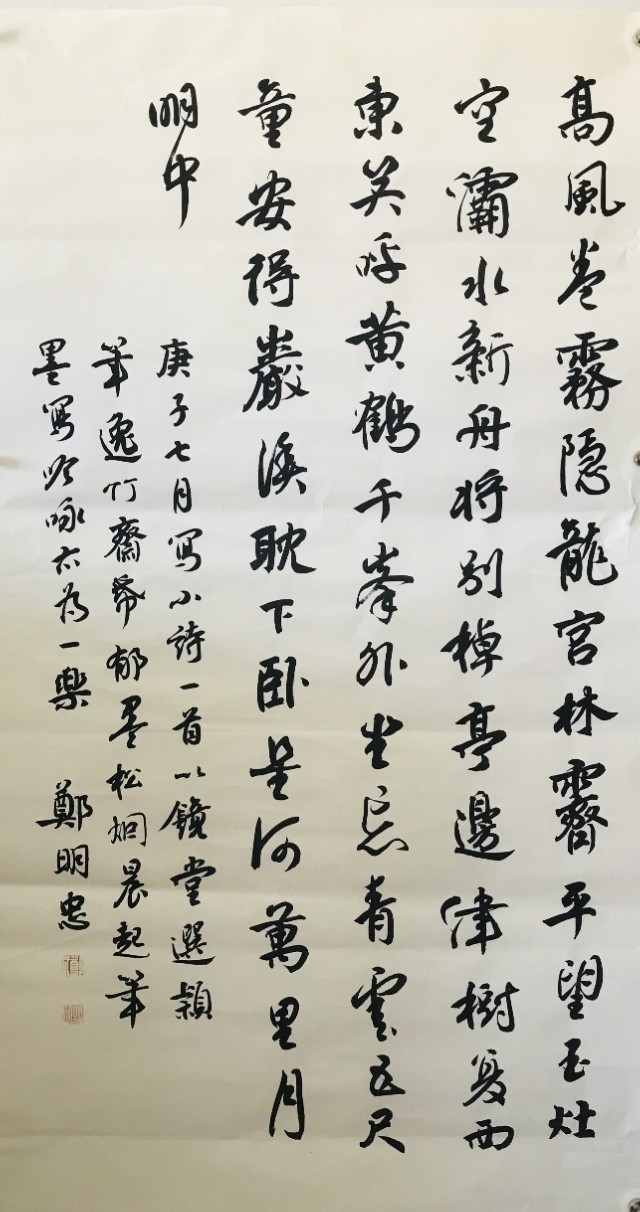 高風卷霧隱龍宮林霽平望玉灶
空灞水新舟將別棹亭邊津樹復西
東笑呼黃鶴千峯外坐忘青雲五尺
童安得嚴溪耽下臥星河萬里月
明中
庚子七月寫小詩一首以鏡堂選穎
筆逸竹齋郁墨松烟晨起筆
墨寫吟咏亦為一樂 鄭明忠